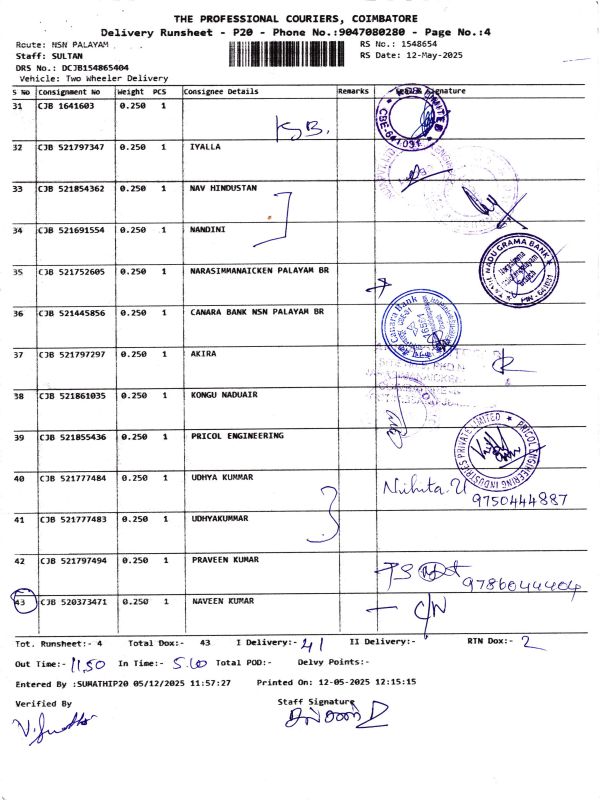 THE PROFESSIONAL COURIERS, COIMBATORE
Delivery Runsheet - P20 - Phone No.:9047080280 - Page No.:4
Route: NSN PALAYAM RS No.: 1548654
Staff: SULTAN RS Date: 12-May-2025
DRS No.: DCJB154865404
Vehicle: Two Wheeler Delivery
S No Consignment No Weight PCS Consignee Details Remarks Signature
31 CJB 1641603 0.250 1 KGB.
32 CJB 521797347 0.250 1 IYALLA
33 CJB 521854362 0.250 1 NAV HINDUSTAN
34 CJB 521691554 0.250 1 NANDINI
35 CJB 521752605 0.250 1 NARASIMMANAICKEN PALAYAM BR
36 CJB 521445856 0.250 1 CANARA BANK NSN PALAYAM BR
37 CJB 521797297 0.250 1 AKIRA
38 CJB 521861035 0.250 1 KONGU NADUAIR
39 CJB 521855436 0.250 1 PRICOL ENGINEERING
PRICOL ENGINEERING INDUSTRIES PRIVATE LIMITED
40 CJB 521777484 0.250 1 UDHYA KUMMAR Nihita.U
9750444887
41 CJB 521777483 0.250 1 UDHYAKUMMAR
42 CJB 521797494 0.250 1 PRAVEEN KUMAR
9786044404
43 CJB 520373471 0.250 1 NAVEEN KUMAR
Tot. Runsheet:- 4 Total Dox:- 43 I Delivery:- 41 II Delivery:- RTN Dox:- 2
Out Time:- 11.50 In Time:- 5.00 Total POD:- Delvy Points:-
Entered By :SUMATHIP20 05/12/2025 11:57:27 Printed On: 12-05-2025 12:15:15
Verified By Staff Signature